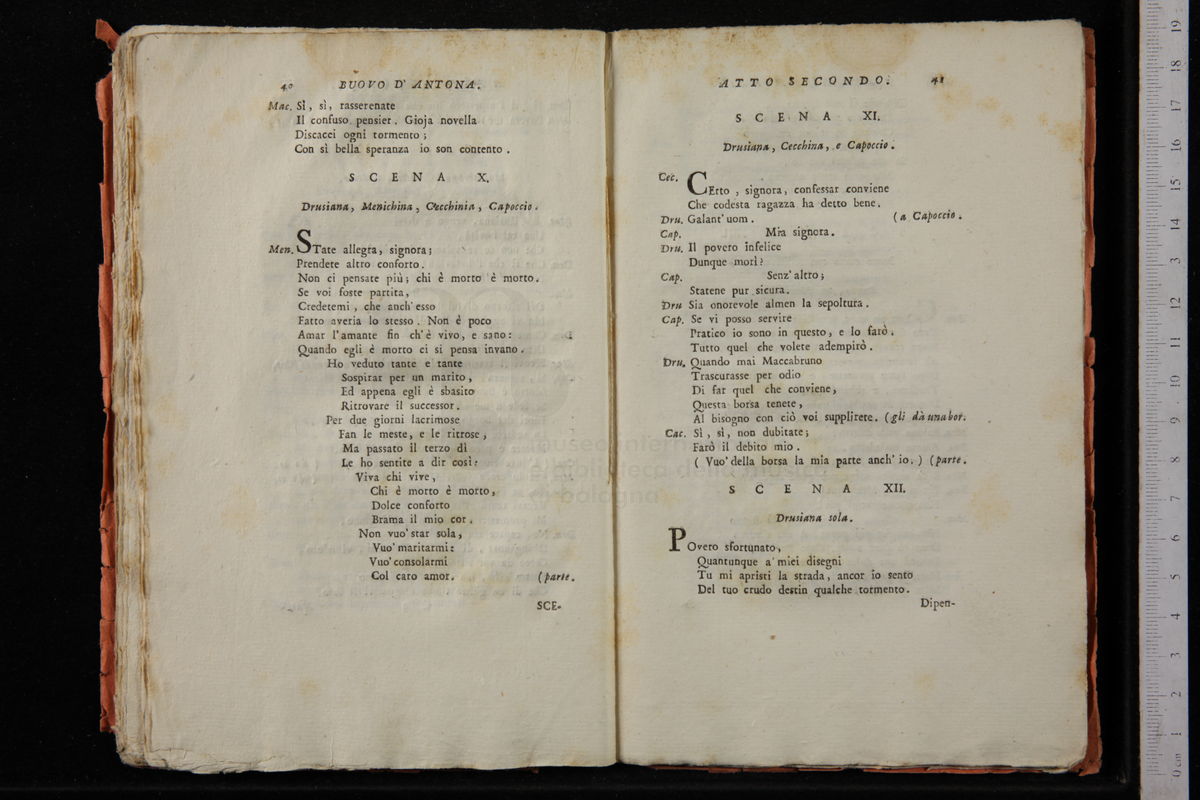 40 BUOVO D' ANTONA.
Mac. Sì, sì, rasserenate
Il confuso pensier. Gioja novella
Discacci ogni tormento;
Con sì bella speranza io son contento.
SCENA X.
Drusiana, Menichina, Cecchinia, Capoccio.
Men. STate allegra, signora;
Prendete altro conforto.
Non ci pensate più; chi è morto è morto.
Se voi foste partita,
Credetemi, che anch' esso
Fatto averia lo stesso. Non è poco
Amar l'amante fin ch'è vivo, e sano:
Quando egli è morto ci si pensa invano.
Ho veduto tante e tante
Sospirar per un marito,
Ed appena egli è sbasito
Ritrovare il successor.
Per due giorni lacrimose
Fan le meste, e le ritrose,
Ma passato il terzo dì
Le ho sentite a dir così:
Viva chi vive,
Chi è morto è morto,
Dolce conforto
Brama il mio cor.
Non vuo' star sola,
Vuo' maritarmi:
Vuo' consolarmi
Col caro amor. (parte.
SCE-
ATTO SECONDO. 41
SCENA XI.
Drusiana, Cecchina, e Capoccio.
Cec. CErto, signora, confessar conviene
Che codesta ragazza ha detto bene.
Dru. Galant' uom. (a Capoccio.
Cap. Mia signora.
Dru. Il povero infelice
Dunque morì?
Cap. Senz' altro;
Statene pur sicura.
Dru Sia onorevole almen la sepoltura.
Cap. Se vi posso servire
Pratico io sono in questo, e lo farò.
Tutto quel che volete adempirò.
Dru. Quando mai Maccabruno
Trascurasse per odio
Di far quel che conviene,
Questa borsa tenete,
Al bisogno con ciò voi supplirete. (gli dà una bor.
Cac. Sì, sì, non dubitate;
Farò il debito mio.
( Vuo' della borsa la mia parte anch' io. ) (parte.
SCENA XII.
Drusiana sola.
POvero sfortunato,
Quantunque a' miei disegni
Tu mi apristi la strada, ancor io sento
Del tuo crudo destin qualche tormento.
Dipen-